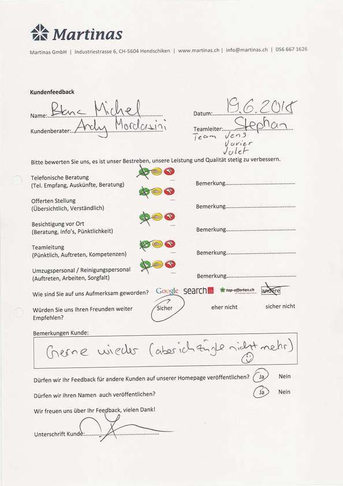 Martinas
Martinas GmbH | Industriestrasse 6, CH-5604 Hendschiken | www.martinas.ch | info@martinas.ch | 056 667 1626
Kundenfeedback
Name: Blanc Michel
Datum: 19.6.2018
Kundenberater: Andy Mordasini
Teamleiter: Stephan
Team Jens
Bitte bewerten Sie uns, es ist unser Bestreben, unsere Leistung und Qualität stetig zu verbessern.
Telefonische Beratung
(Tel. Empfang, Auskünfte, Beratung)
Bemerkung
Offerten Stellung
(Übersichtlich, Verständlich)
Bemerkung
Besichtigung vor Ort
(Beratung, Info's, Pünktlichkeit)
Bemerkung
Teamleitung
(Pünktlich, Auftreten, Kompetenzen)
Bemerkung
Umzugspersonal / Reinigungspersonal
(Auftreten, Arbeiten, Sorgfalt)
Bemerkung
Wie sind Sie auf uns Aufmerksam geworden? Google search top-offerten.ch andere
Würden Sie uns Ihren Freunden weiter
Empfehlen?
Sicher eher nicht sicher nicht
Bemerkungen Kunde:
Gerne wieder (aber ich zügle nicht mehr)
Dürfen wir Ihr Feedback für andere Kunden auf unserer Homepage veröffentlichen? Ja Nein
Dürfen wir Ihren Namen auch veröffentlichen? Ja Nein
Wir freuen uns über Ihr Feedback, vielen Dank!
Unterschrift Kunde: